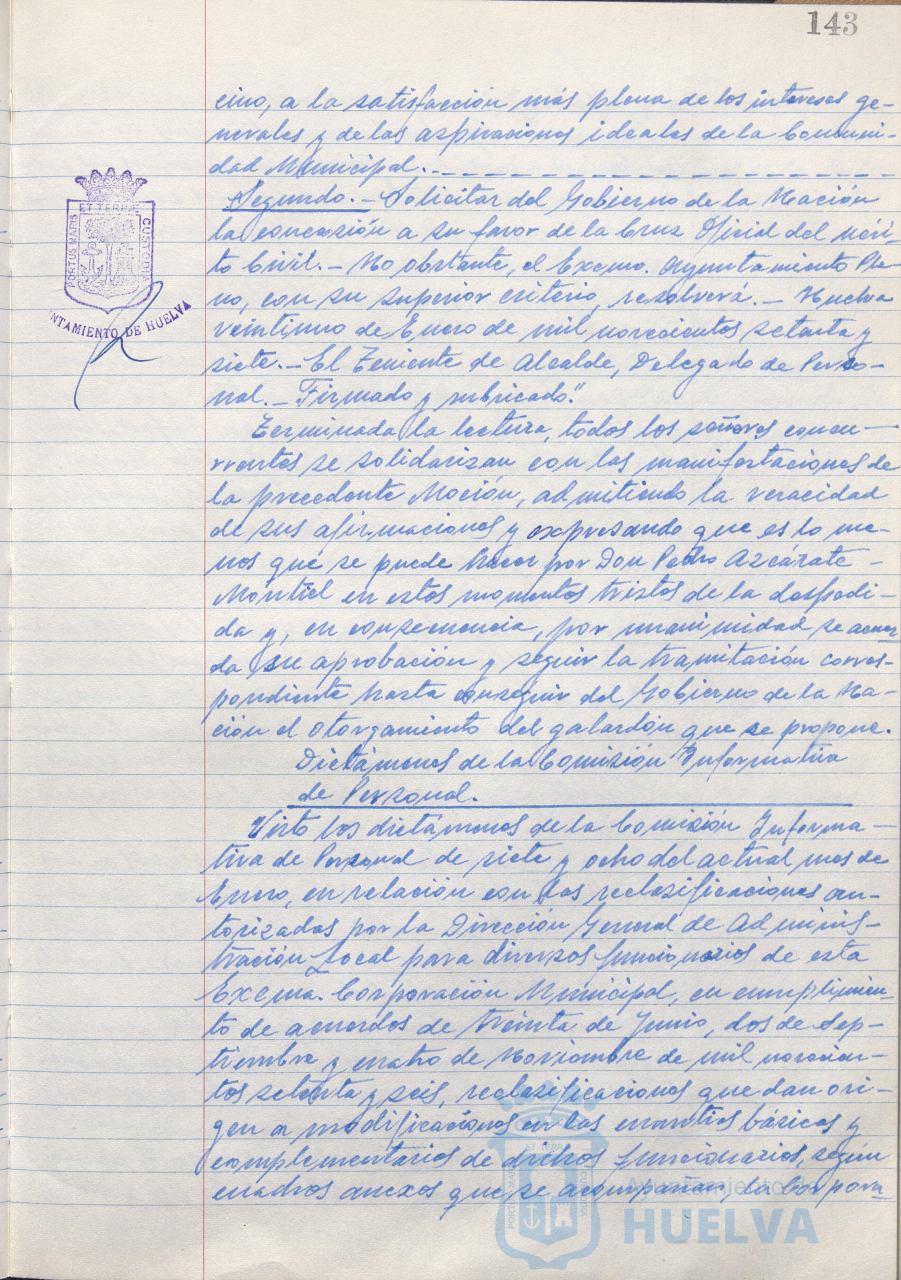 143
cino, a la satisfacción más plena de los intereses ge-
nerales y de las aspiraciones ideales de la Comuni-
dad Municipal.
Segundo.- Solicitar del Gobierno de la Nación
la concesión a su favor de la Cruz Oficial del Méri-
to Civil.- No obstante, el Excmo. Ayuntamiento Ple-
no, con su superior criterio, resolverá.- Huelva
veintiuno de Enero de mil novecientos setenta y
siete.- El Teniente de Alcalde, Delegado de Perso-
nal.- Firmado y rubricado".
Terminada la lectura, todos los señores concu-
rrentes se solidarizan con las manifestaciones de
la precedente Moción, admitiendo la veracidad
de sus afirmaciones y expresando que es lo me-
nos que se puede hacer por Don Pedro Azcárate
Montiel en estos momentos tristes de la despedi-
da y, en consecuencia, por unanimidad se acuer
da su aprobación y seguir la tramitación corres-
pondiente hasta conseguir del Gobierno de la Na-
ción el otorgamiento del galardón que se propone.
Dictámenes de la Comisión Informativa
de Personal.
Visto los dictámenes de la Comisión Informa-
tiva de Personal de siete y ocho del actual mes de
Enero, en relación con las reclasificaciones au-
torizadas por la Dirección General de Adminis-
tración Local para diversos funcionarios de esta
Excma. Corporación Municipal, en cumplimien-
to de acuerdos de treinta de Junio, dos de Sep-
tiembre y cuatro de Noviembre de mil novecien-
tos setenta y seis, reclasificaciones que dan ori-
gen a modificaciones en las cuantías básicas y
complementarios de dichos funcionarios, según
cuadros anexos que se acompañan, la Corpora
PORTUS MARIS
ET TERRAE
CUSTODIA
AYUNTAMIENTO DE HUELVA
Ayuntamiento de
HUELVA